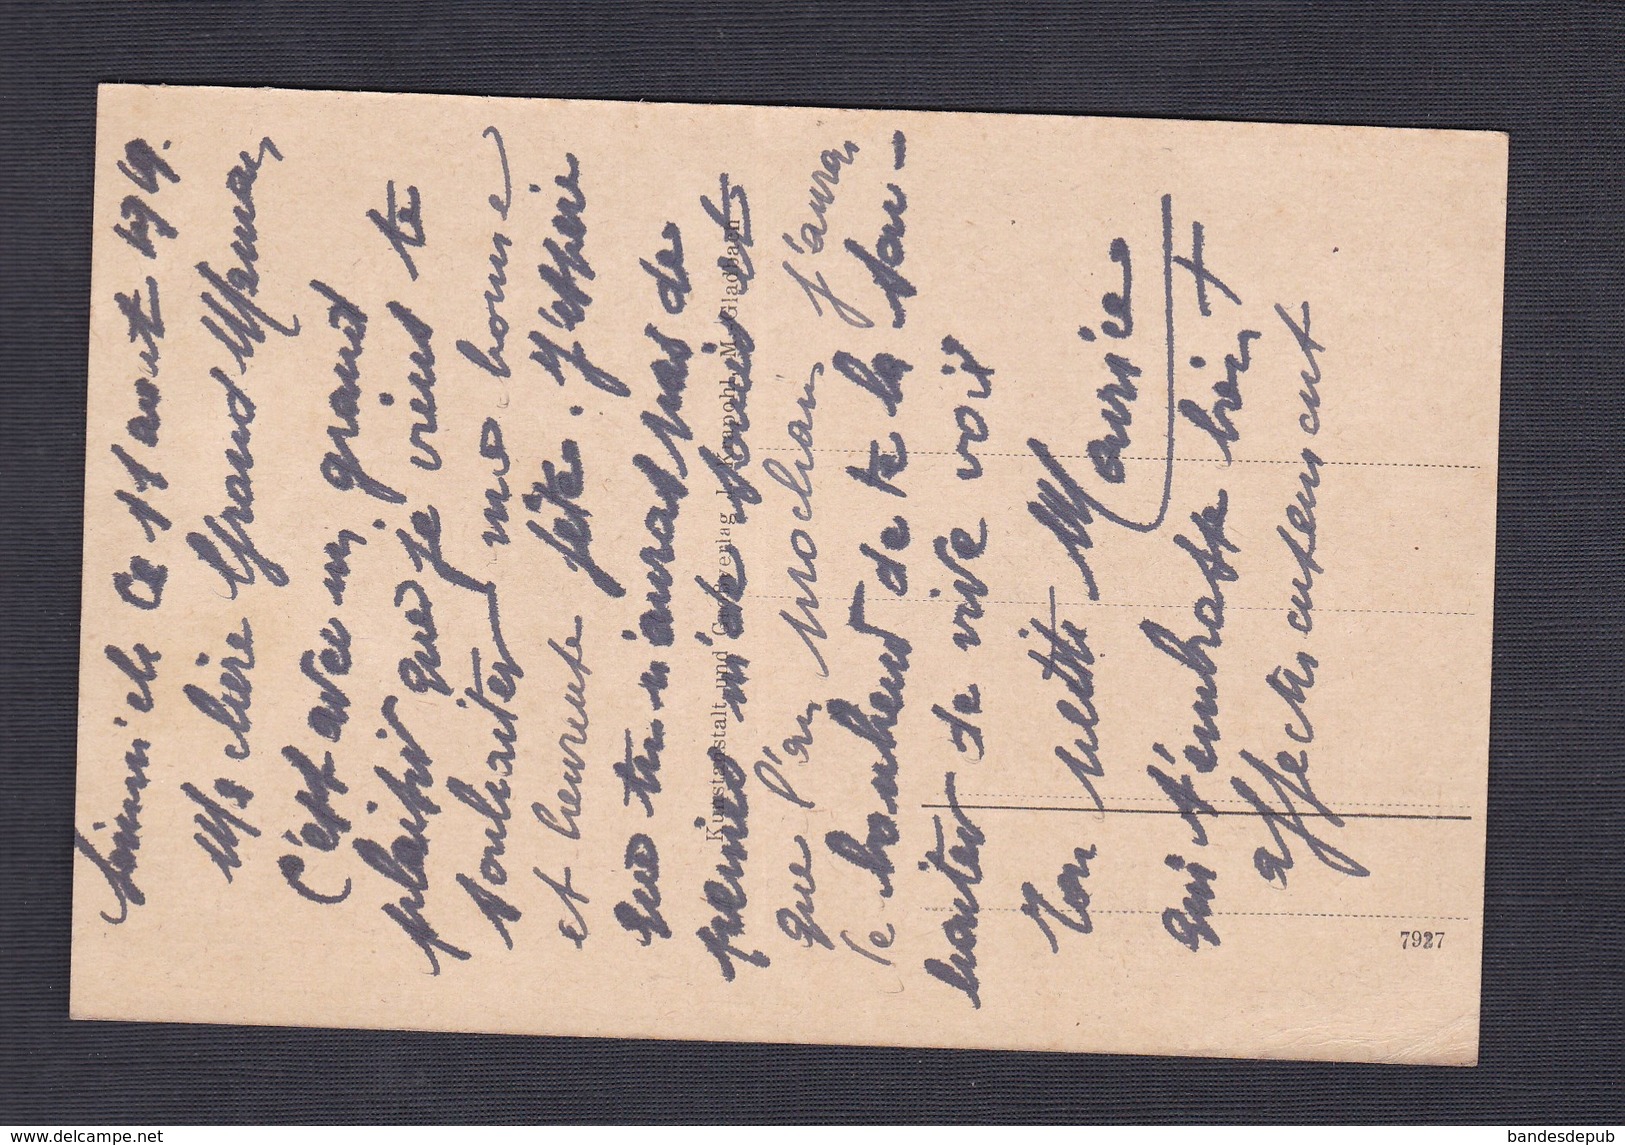 ce 11 aout 1919.
Ma chère Grand Maman,
C'est avec un grand
plaisir que je viens te
souhaiter une bonne
et heureuse fête. J'espère
que tu n'auras pas de
peines m'en fais et
que l'an prochain j'aurai
le bonheur de te la sou-
haiter de vive voix
Ton petit Maurice
qui t'embrasse bien +
affectueusement
Kunstanstalt und Großverlag J. Krapohl, M.-Gladbach
7927
bandesdepub